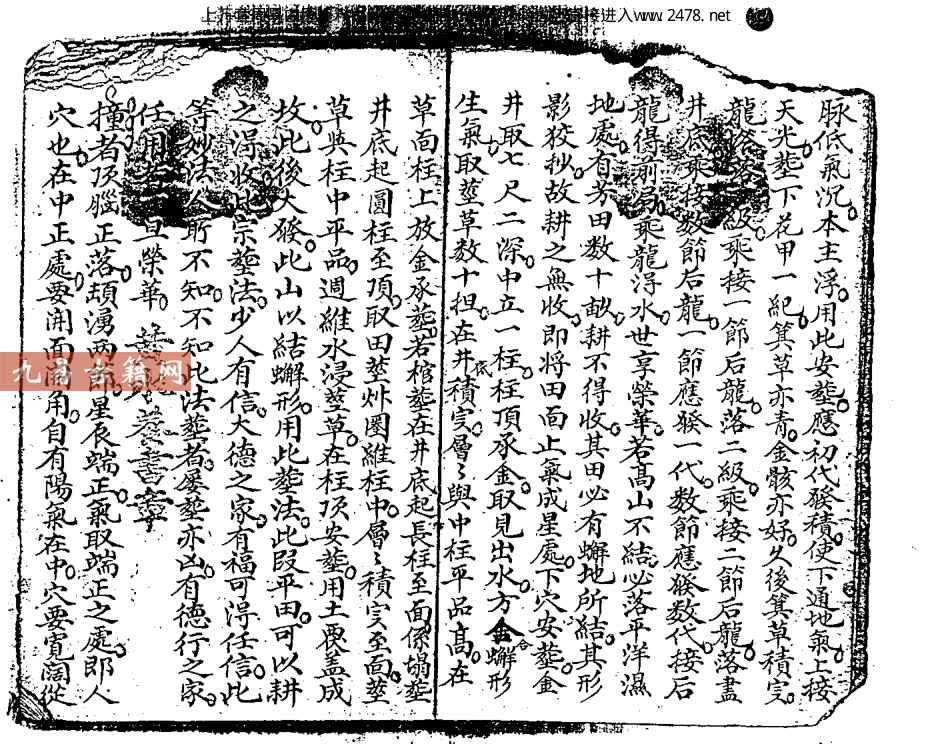 进入www.2478.net
脉低氣沉本主浮用此安塟應初代發積使下通地氣上接
天光塟下花甲一紀箕草亦青金骸亦好久後箕草積实
龍落 級乘接一節后龍落二級乘接二節后龍落盡
井底乘接数節后龍一節應發一代数節應發数代接后
龍得前 乘龍淂水世享榮華若髙山不結必落平洋濕
地處有芳田数十畝耕不得收其田必有蠏地所結其形
影狡抄故耕之無收即将田面上氣成星處下穴安塟金
井取七尺二深中立一柱柱頂承金取見出水方金蠏形
生氣取莖草数十担在井底積实層〻與中柱平品髙在
草面柱上放金承塟若棺塟在井底起長柱至面係塌塟
井底起圓柱至頂取田莖炸圈維柱中層〻積实至面莖
草與柱中平品週維水浸莖草在柱頂安塟用土要盖成
坟此後大發此山以結蠏形用此塟法此段平田可以耕
之淂收此宗塟法少人有信大德之家有福可淂任信此
等妙法人所不知不知此法塟者屡塟亦凶有德行之家
任用 榮華
撞者頂腦正落頏湧 星辰端正氣取端正之處即人
穴也在中正處要開面開角自有陽氣在中穴要寬濶從
九易 籍网